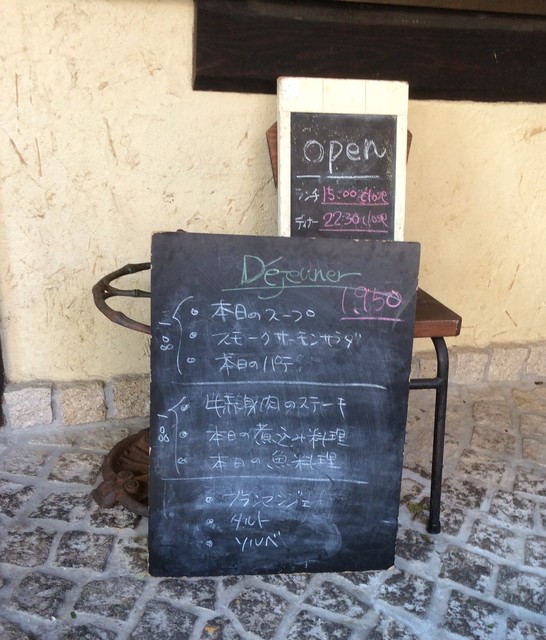 open
ランチ 15:00 close
ディナー 22:30 close
Déjeuner
1,950
本日のスープ
スモークサーモンサラダ
本日のパテ
牛赤身肉のステーキ
本日の煮込み料理
本日の魚料理
ブランマンジェ
タルト
ソルベ